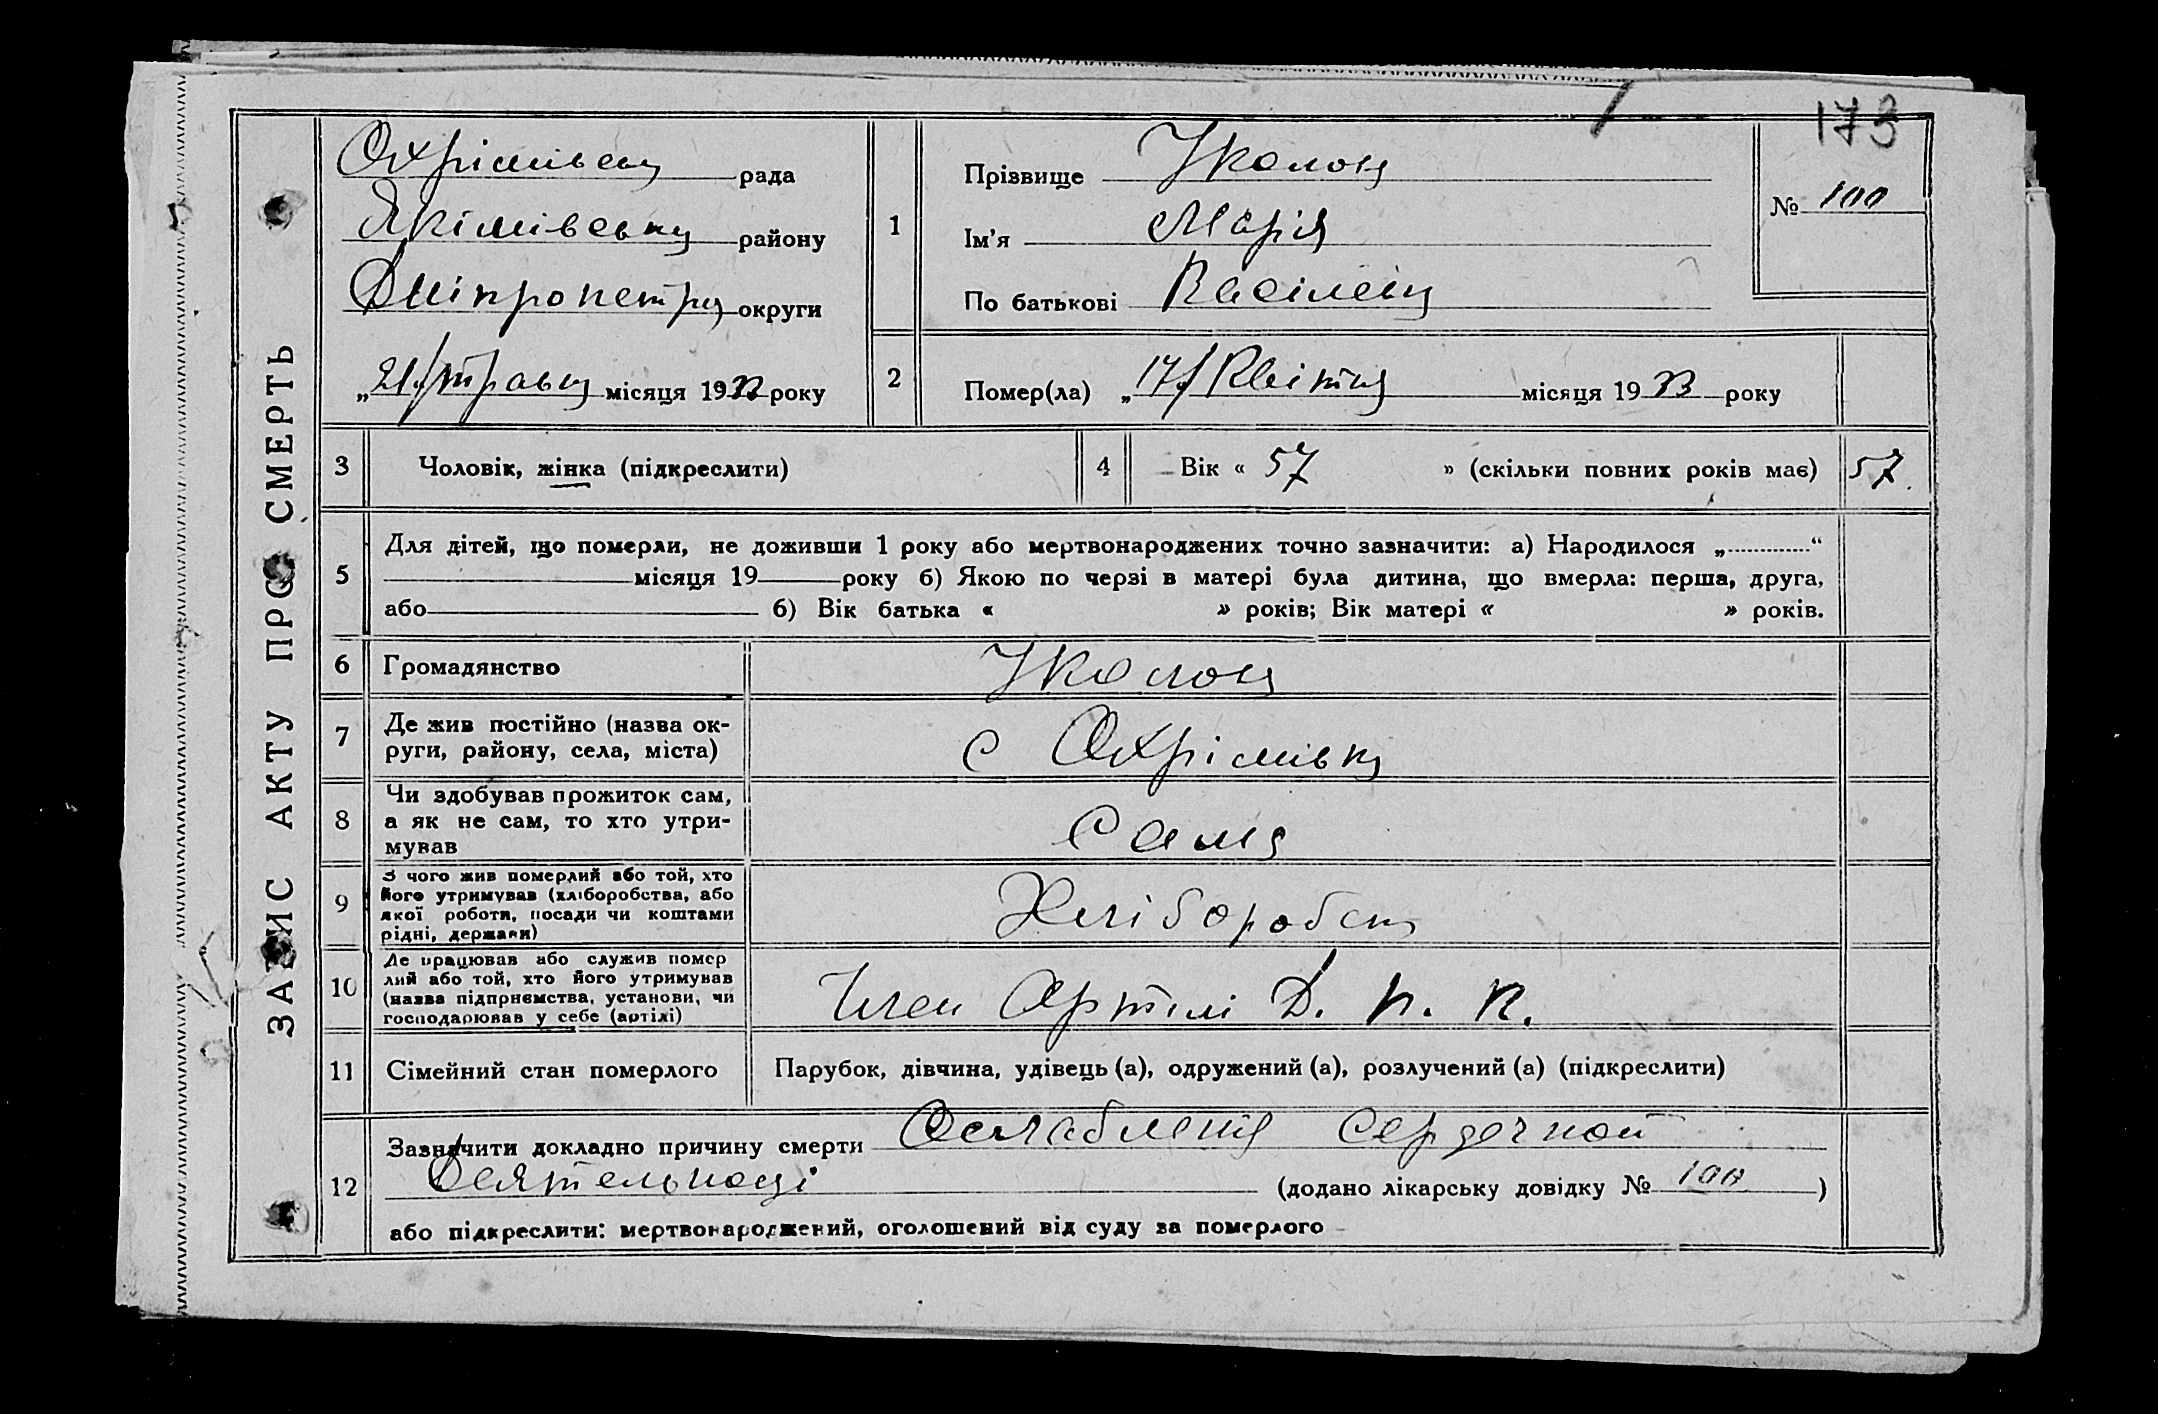 173
ЗАПИС АКТУ ПРО СМЕРТЬ
Охрімівськ рада
Якімівську району
Дніпропетр округи
„21/травн місяця 1933 року
1
Прізвище
Ім'я Марія
По батькові Васілевн
№ 100
2
Помер(ла) „17/Квітня місяця 1933 року
3 Чоловік, жінка (підкреслити)
4 Вік « 57 » (скільки повних років має) 57.
5
Для дітей, що померли, не доживши 1 року або мертвонароджених точно зазначити: а) Народилося „............."
місяця 19 року б) Якою по черзі в матері була дитина, що вмерла: перша, друга,
або б) Вік батька « » років; Вік матері « » років.
6 Громадянство
7 Де жив постійно (назва ок-
руги, району, села, міста)
с Охрімівка
8 Чи здобував прожиток сам,
а як не сам, то хто утри-
мував
Сама
9 З чого жив померлий або той, хто
його утримував (хліборобства, або
якої роботи, посади чи коштами
рідні, держави)
Хлібороб
10 Де працював або служив помер
лий або той, хто його утримував
(назва підприємства, установи, чи
господарював у себе (артілі)
Член Артілі Д. П. К.
11 Сімейний стан померлого
Парубок, дівчина, удівець (а), одружений (а), розлучений (а) (підкреслити)
12
Зазначити докладно причину смерти Ослабленія Сердечной
Деятельносці (додано лікарську довідку № 100 )
або підкреслити: мертвонароджений, оголошений від суду за померлого